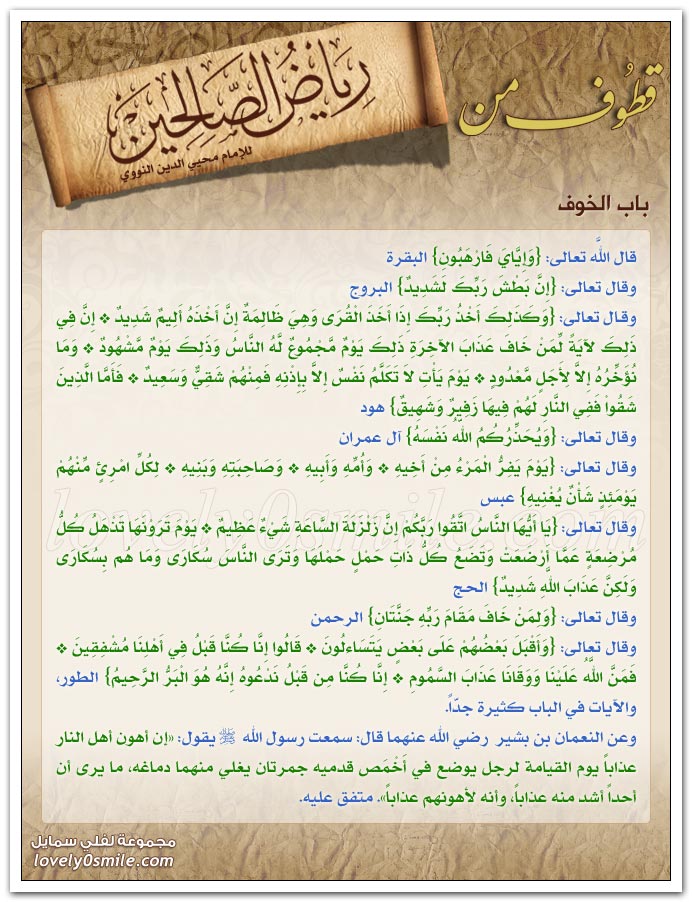 قطوف من
رياض الصالحين
للإمام محيي الدين النووي
باب الخوف
قال اللَّه تعالى: {وَإِيَّايَ فَارْهَبُونِ} البقرة
وقال تعالى: {إِنَّ بَطْشَ رَبِّكَ لَشَدِيدٌ} البروج
وقال تعالى: {وَكَذَلِكَ أَخْذُ رَبِّكَ إِذَا أَخَذَ الْقُرَى وَهِيَ ظَالِمَةٌ إِنَّ أَخْذَهُ أَلِيمٌ شَدِيدٌ * إِنَّ فِي
ذَلِكَ لآيَةً لِّمَنْ خَافَ عَذَابَ الآخِرَةِ ذَلِكَ يَوْمٌ مَّجْمُوعٌ لَّهُ النَّاسُ وَذَلِكَ يَوْمٌ مَّشْهُودٌ * وَمَا
نُؤَخِّرُهُ إِلاَّ لِأَجَلٍ مَّعْدُودٍ * يَوْمَ يَأْتِ لاَ تَكَلَّمُ نَفْسٌ إِلاَّ بِإِذْنِهِ فَمِنْهُمْ شَقِيٌّ وَسَعِيدٌ * فَأَمَّا الَّذِينَ
شَقُواْ فَفِي النَّارِ لَهُمْ فِيهَا زَفِيرٌ وَشَهِيقٌ} هود
وقال تعالى: {وَيُحَذِّرُكُمُ الله نَفْسَهُ} آل عمران
وقال تعالى: {يَوْمَ يَفِرُّ الْمَرْءُ مِنْ أَخِيهِ * وَأُمِّهِ وَأَبِيهِ * وَصَاحِبَتِهِ وَبَنِيهِ * لِكُلِّ امْرِئٍ مِّنْهُمْ
يَوْمَئِذٍ شَأْنٌ يُغْنِيهِ} عبس
وقال تعالى: {يَا أَيُّهَا النَّاسُ اتَّقُوا رَبَّكُمْ إِنَّ زَلْزَلَةَ السَّاعَةِ شَيْءٌ عَظِيمٌ * يَوْمَ تَرَوْنَهَا تَذْهَلُ كُلُّ
مُرْضِعَةٍ عَمَّا أَرْضَعَتْ وَتَضَعُ كُلُّ ذَاتِ حَمْلٍ حَمْلَهَا وَتَرَى النَّاسَ سُكَارَى وَمَا هُم بِسُكَارَى
وَلَكِنَّ عَذَابَ اللَّهِ شَدِيدٌ} الحج
وقال تعالى: {وَلِمَنْ خَافَ مَقَامَ رَبِّهِ جَنَّتَانِ} الرحمن
وقال تعالى: {وَأَقْبَلَ بَعْضُهُمْ عَلَى بَعْضٍ يَتَسَاءلُونَ * قَالُوا إِنَّا كُنَّا قَبْلُ فِي أَهْلِنَا مُشْفِقِينَ *
فَمَنَّ اللَّهُ عَلَيْنَا وَوَقَانَا عَذَابَ السَّمُومِ * إِنَّا كُنَّا مِن قَبْلُ نَدْعُوهُ إِنَّهُ هُوَ الْبَرُّ الرَّحِيمُ} الطور،
والآيات في الباب كثيرة جدّاً.
وعن النعمان بن بشير رضي الله عنهما قال: سمعت رسول الله ﷺ يقول: «إن أهون أهل النار
عذاباً يوم القيامة لرجل يوضع في أَخْمَص قدميه جمرتان يغلي منهما دماغه، ما يرى أن
أحداً أشد منه عذاباً، وأنه لأهونهم عذاباً». متفق عليه.
lovely0smile.com
مجموعة لفلي سمايل
lovely0smile.com